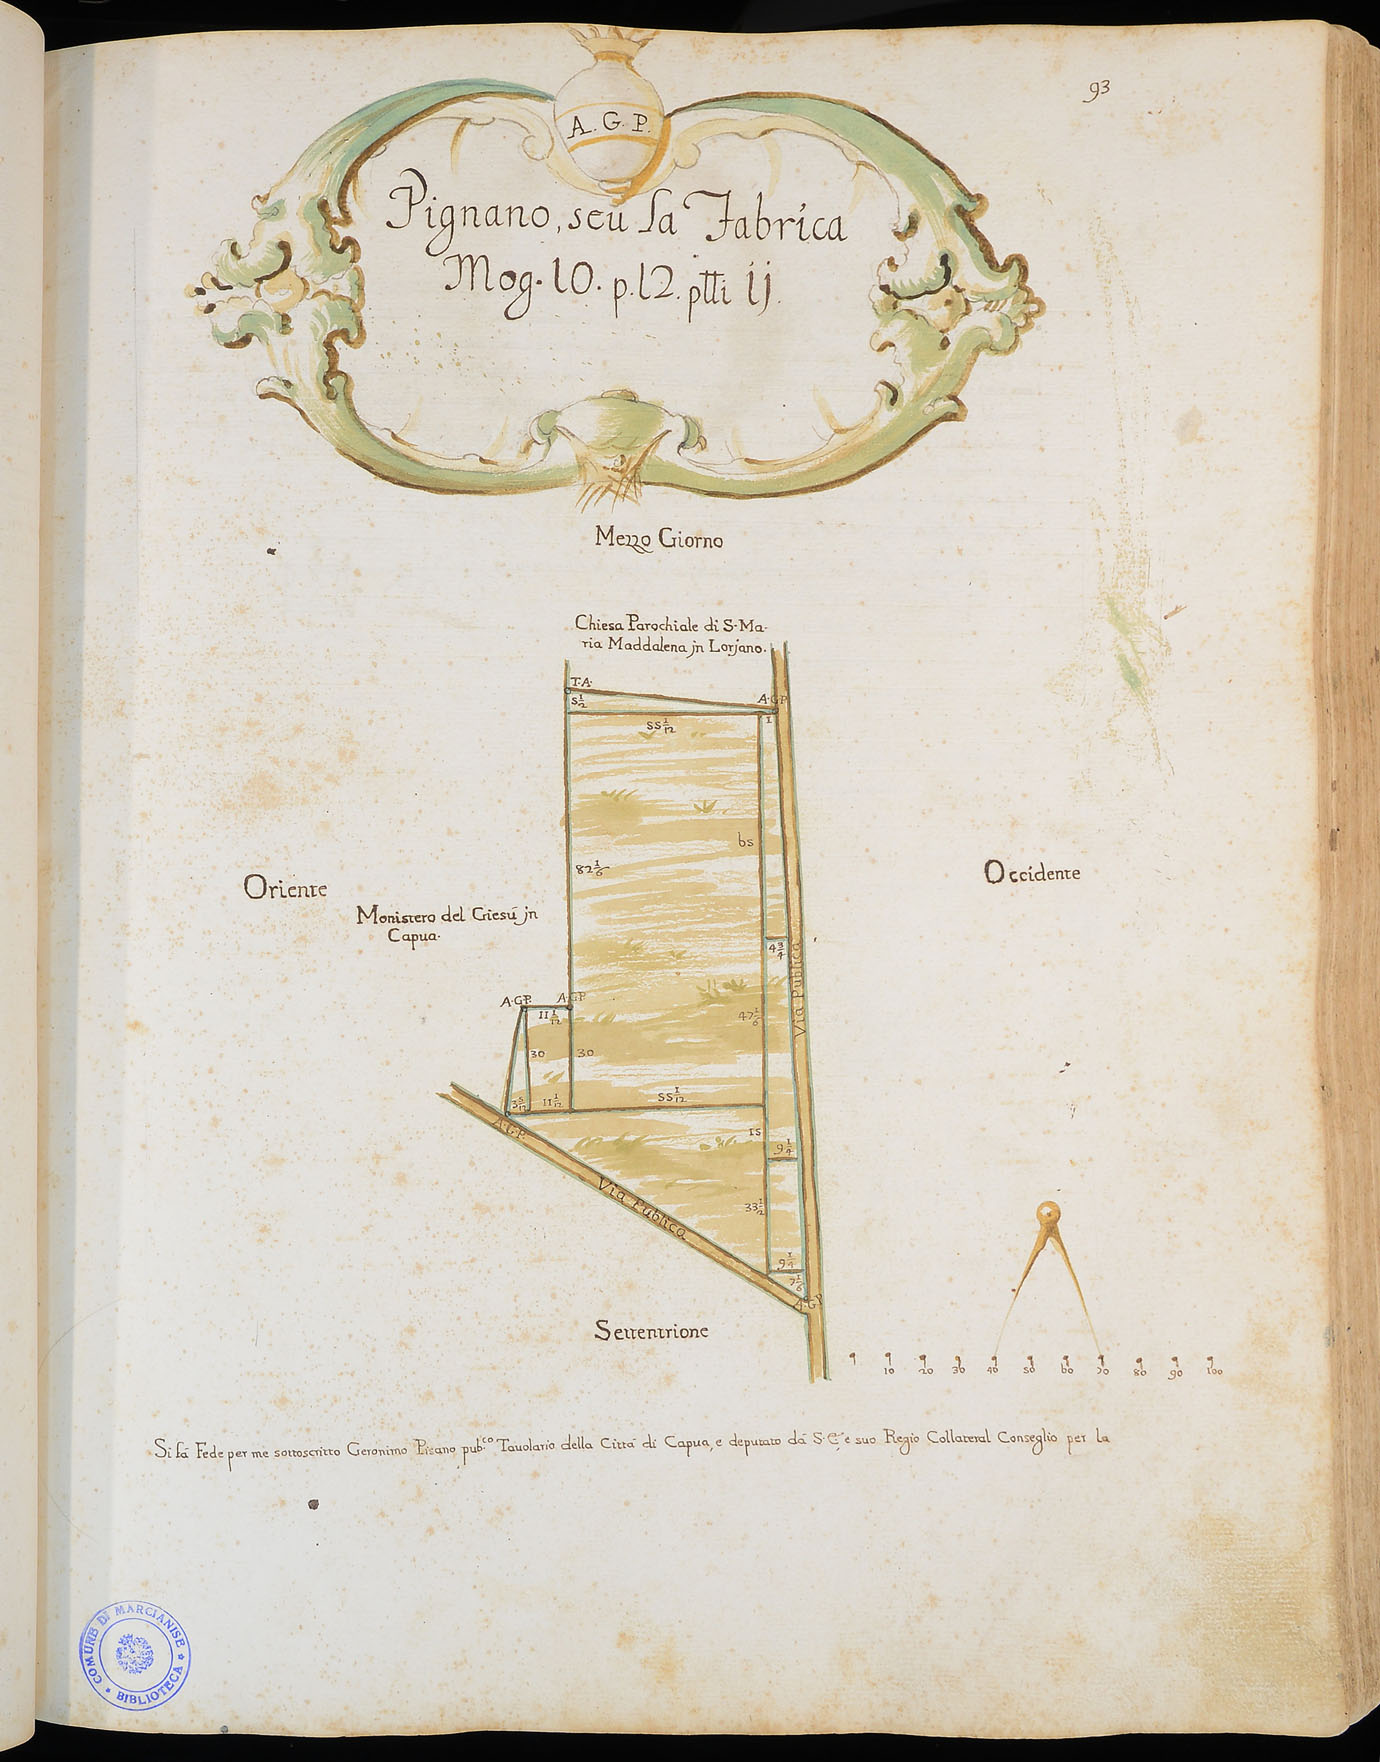 93
A. G. P.
Pignano, seu la Fabrica
Mog. 10. p. 12. ptti ij.
Mezzo Giorno
Chiesa Parochiale di S. Ma-
ria Maddalena jn Lorjano.
T. A.
A. G. P.
5 1/2
1
55 1/12
65
82 1/6
Oriente
Occidente
Monistero del Giesú jn
Capua.
4 3/4
Via Publica
A. G. P.
A. G. P.
11 1/12
47 1/6
30
30
3 5/12
11 1/12
55 1/12
A. G. P.
15
9 1/4
Via Publica
33 1/2
9 1/4
7 1/6
A. G. P.
Settentrione
10 20 30 40 50 60 70 80 90 100
Si fá Fede per me sottoscritto Geronimo Pisano pub.co Tavolario della Cittá di Capua, e deputato dá S. E., e suo Regio Collateral Conseglio per la
COMUNE DI MARCIANISE
BIBLIOTECA